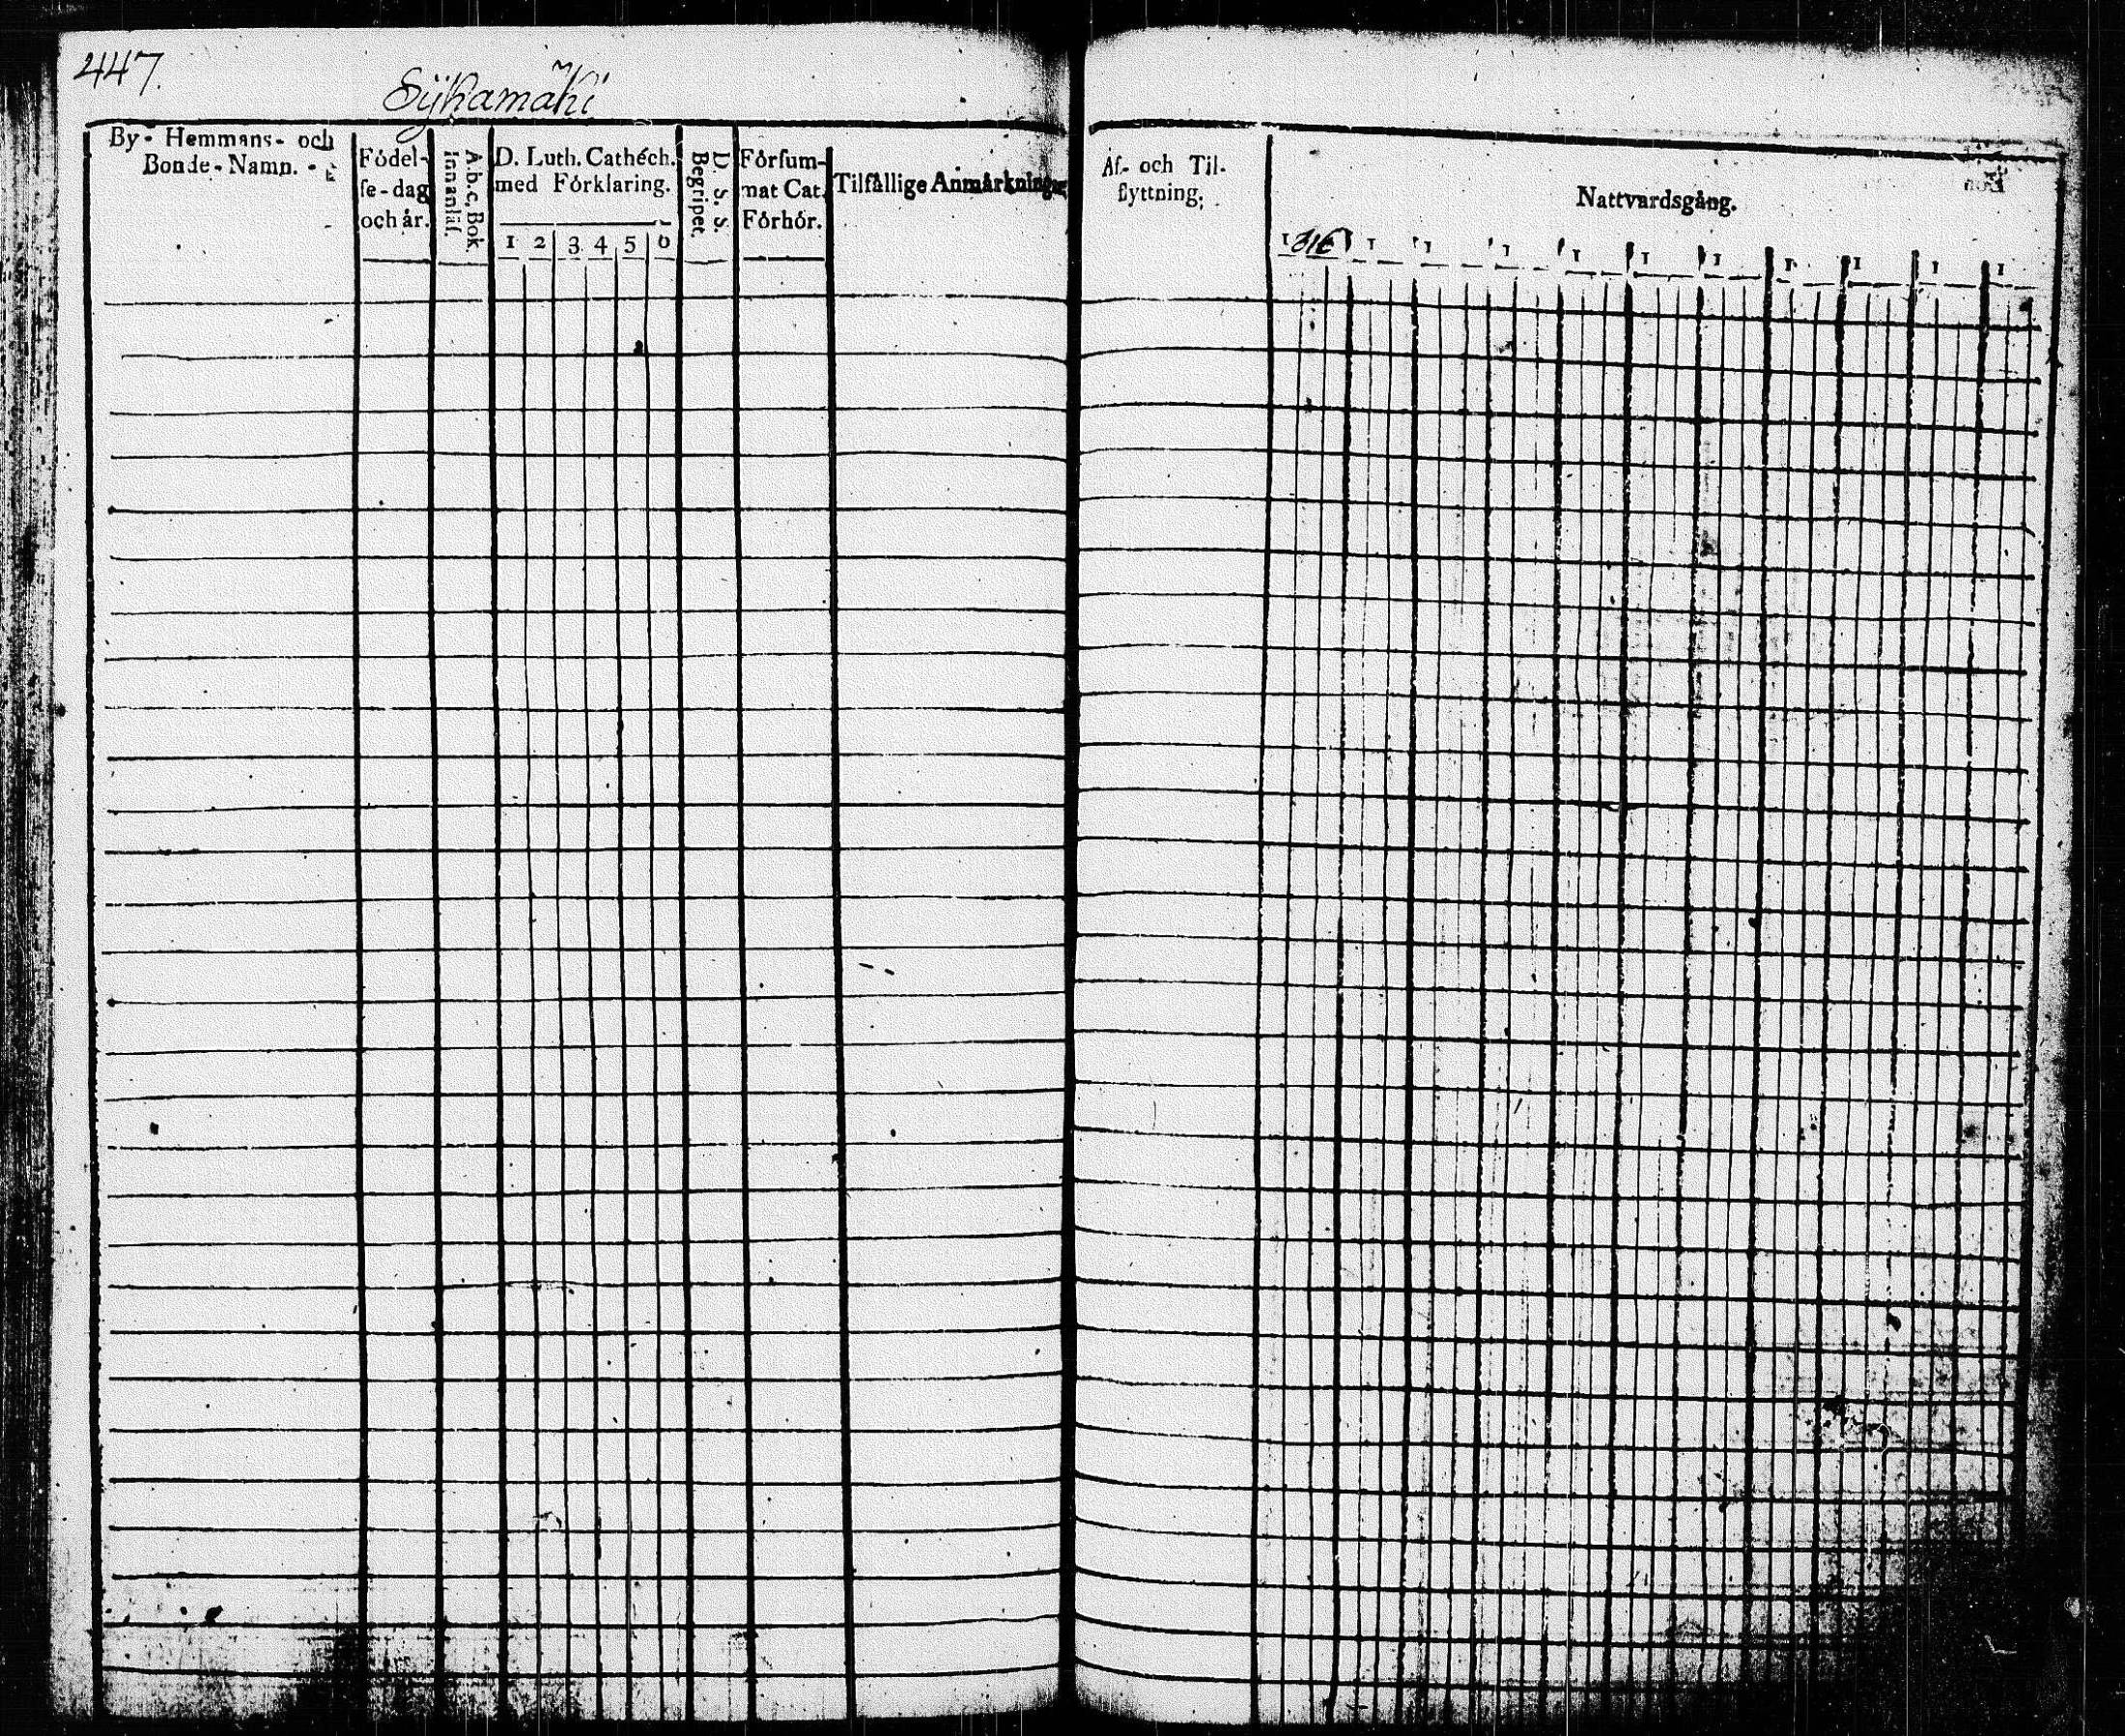 447.
Sÿkamäki
By- Hemmans- och
Bonde-Namn.
Födel-
se-dag
och år.
A.b.c, Bok.
Innanläs.
D. Luth. Cathéch.
med Förklaring.
1 2 3 4 5 6
D. S. S.
Begripet.
Försum-
mat Cat.
Förhör.
Tilfällige Anmärkningar
Af- och Til-
flyttning.
Nattvardsgång.
1816 1 1 1 1 1 1 1 1 1 1